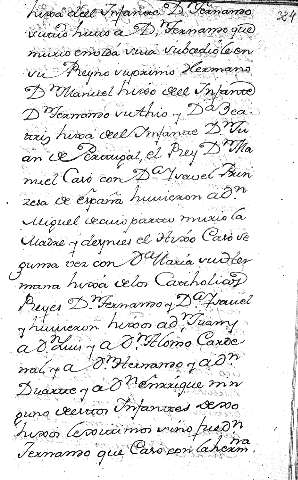 324
hixos del Infante Dn Fernando
hubo hixo a Dn Fernando que
murio en vida suia subcediole en
su Reyno su primo Hermano
Dn Manuel hixo del Infante
Dn Fernando su thio y Da Bea
tris hixa del Infante Dn Ju
an de Portugal, el Rey Dn Ma
nuel Casó con Da Isavel Prin
zesa de españa huvieron a dn
Miguel de cuio parto murio la
Madre y despues el Hixo Caso se
gunda vez con Da Maria su Her
mana hixa de los Catholicos
Reyes Dn Fernando y Da Isavel
y huvieron hixos a dn Juan y
a Dn Luis y a Dn Alonso Carde
nal, y a Dn Hernando y a dn
Duarte y a Dn enrrique nin
guno de estos Infantes dexo
hixos lexitimos sino fue dn
Fernando que Caso con la herma